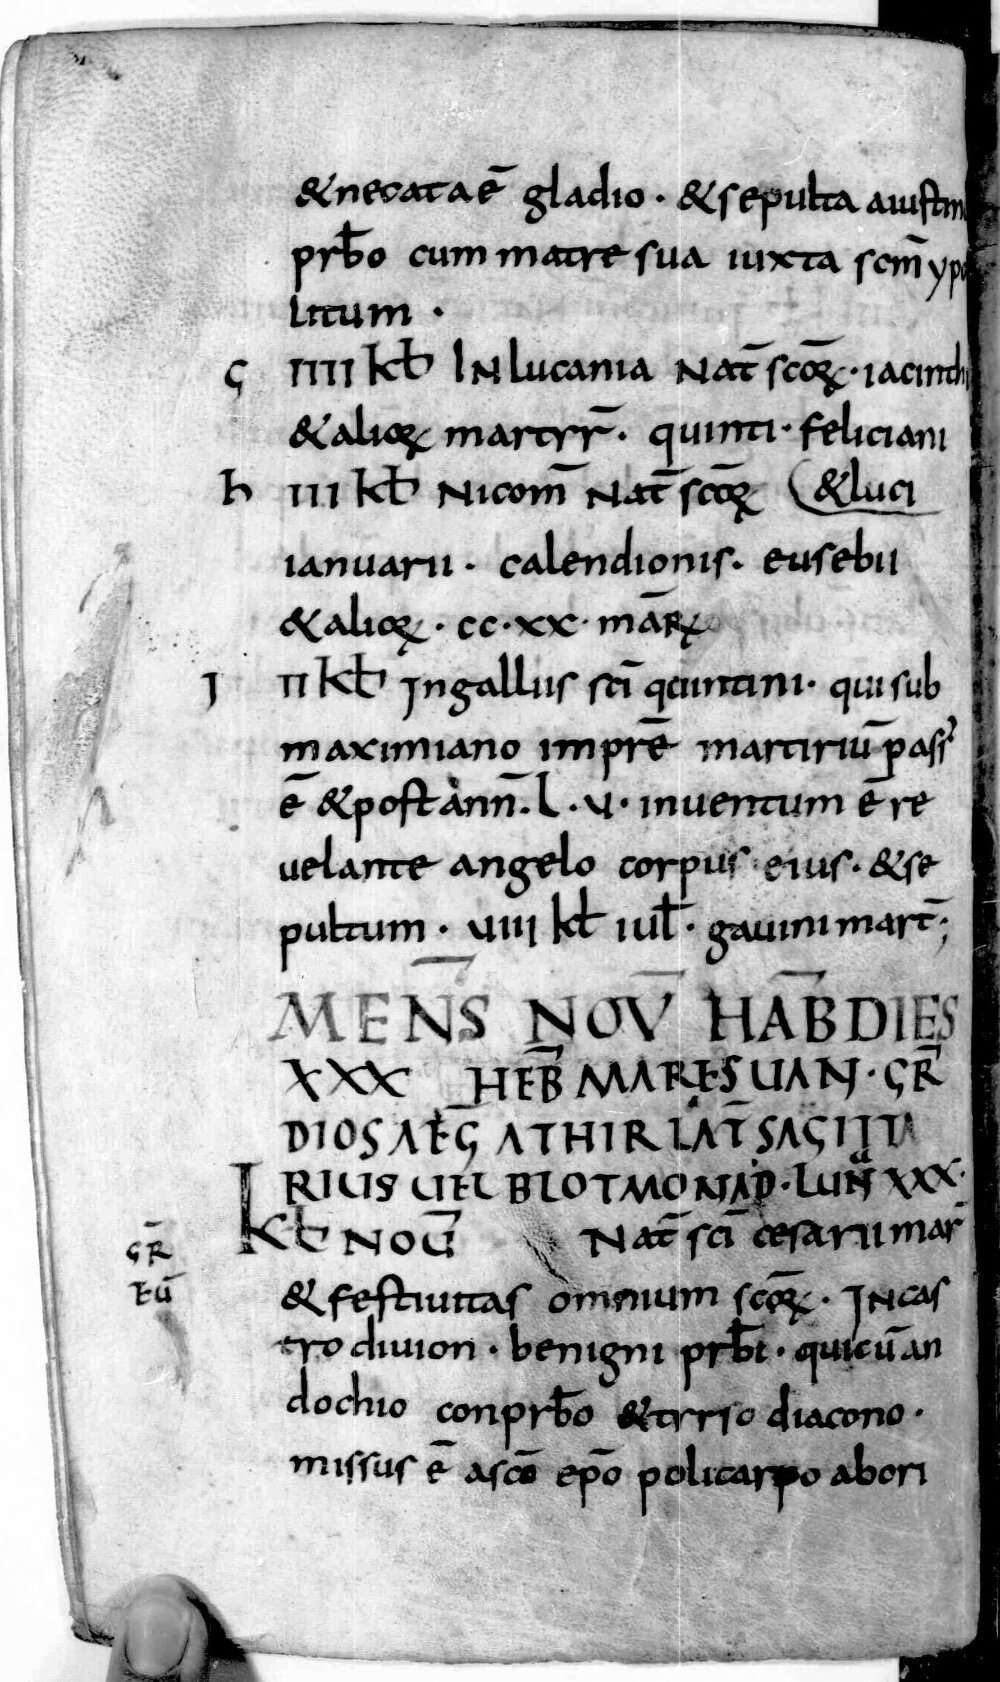 & necata ē gladio · & sepulta a iustin
prb̄o cum matre sua iuxta scm̄ ypo
litum ·
G IIII kl̄ IN lucania Nat̄ scōꝝ · iacinthi
& alioꝝ martyr̄ · quinti · feliciani
h III kl̄ Nicom̄ Nat̄ scōꝝ (& luci
ianuarii · calendionis · eusebii
& alioꝝ · cc · xx · mār̄ꝝ
I II kl̄ In gallus sc̄i quintini · qui sub
maximiano impr̄e martiriū passˀ
ē & post ann̄ · L · V · inuentum ē re
uelante angelo corpus eius · & se
pultum · VIII kl̄ iul̄ · gauini mart̄;
MEN̄S NOV̄ HAB̄ DIES
XXX HEB̄ MARESUAN · GR̄
DIOS AEḠ ATHIR LAT̄ SAGITTA
RIUS UEL BLOTMONAD · LUN̄ XXX ·
GR̄ Kl̄ NOU̅ Nat̄ sc̄i cesarii mar̄
Eū & festiuitas omnium scōꝝ · IN cas
tro diuion · benigni prb̄i · qui cū an
dochio conprb̄o & tyrsio diacono ·
missus ē a scō ep̄o policarpo ab ori